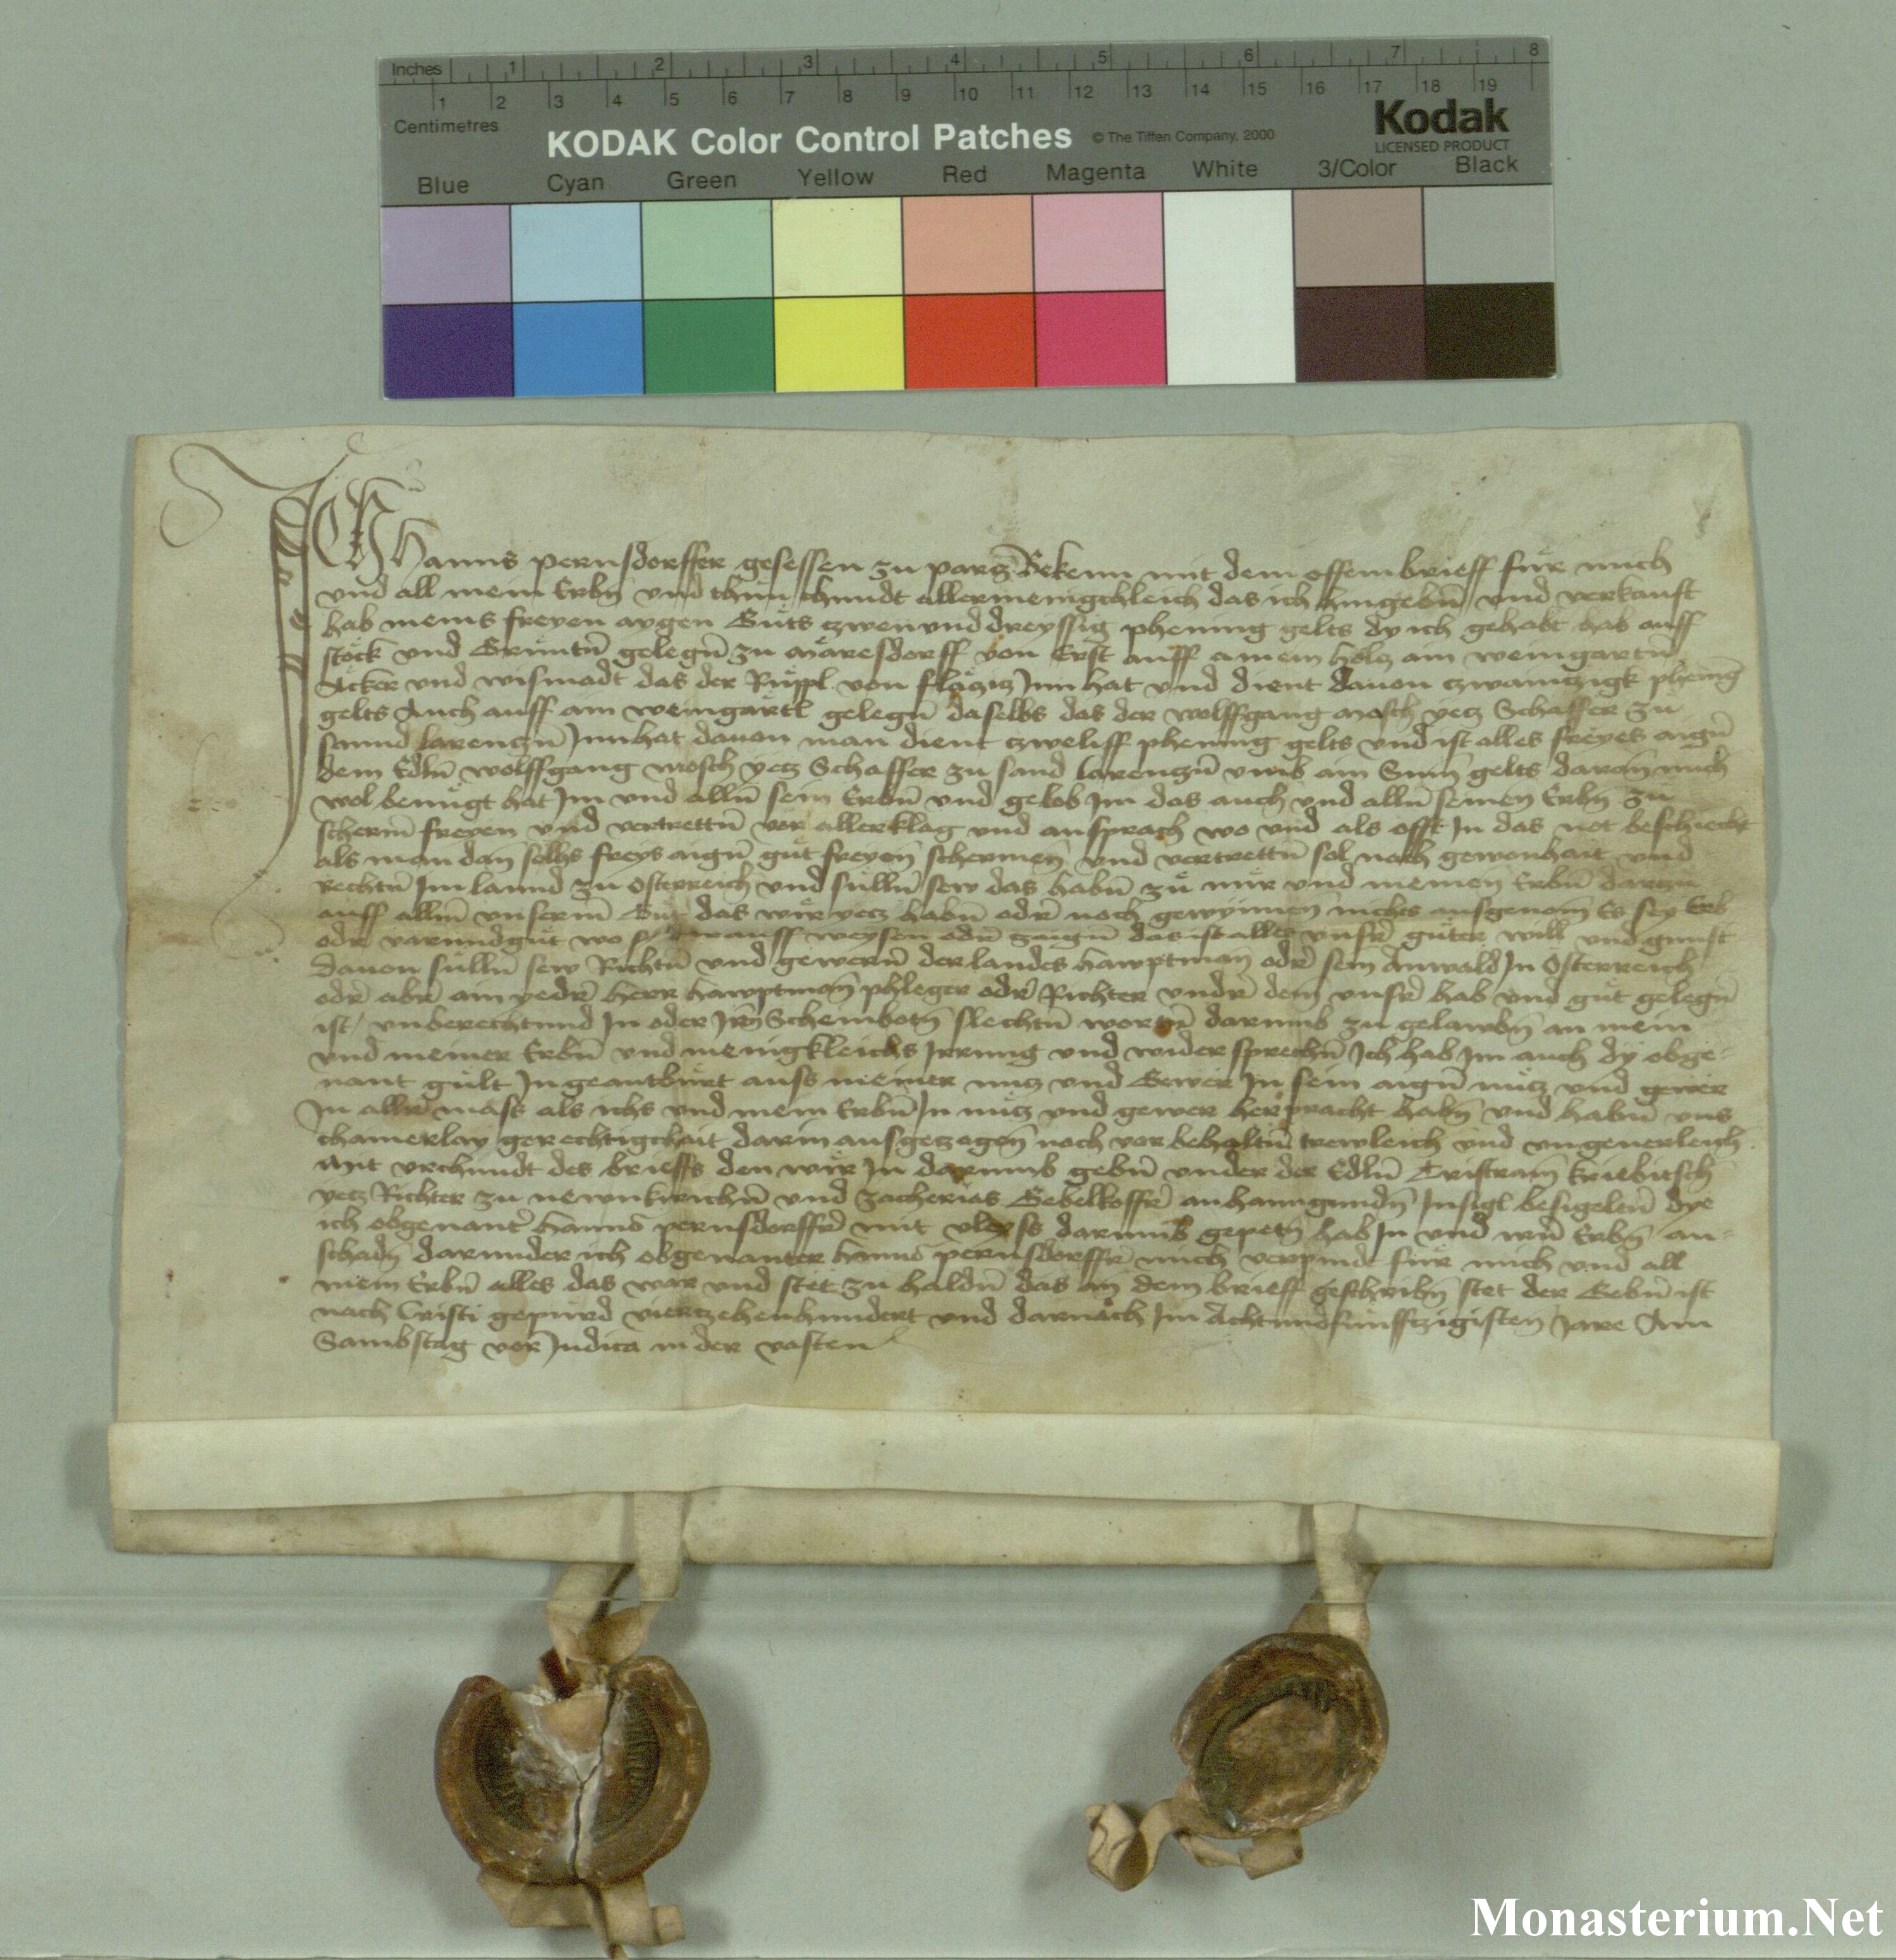 Inches 1 2 3 4 5 6 7 8
1 2 3 4 5 6 7 8 9 10 11 12 13 14 15 16 17 18 19
Centimetres
KODAK Color Control Patches © The Tiffen Company, 2000
Kodak
LICENSED PRODUCT
Blue Cyan Green Yellow Red Magenta White 3/Color Black
Ich Hanns pernsdorffer gesessen zu parg Bekenn mit dem offem brieff für mich
vnd all mein Erbn̄ vnd thun chundt allermenigchleich das ich hingebn̄ vnd verkauft
hab meins freyen aygen Guts czwen vnd dreyssig phening gelts dy ich gehabt hab auff
stöck vnd Gruntn̄ gelegn̄ zu maresdorff von Erst auff ainem holcz ain weingartn̄
Acker vnd wismadt das der Rüppl von Innhat vnd dient dauon czwainczigk phenīg
gelts Auch auff aim weingartl gelegn̄ daselbs das der wolffgang mosch yetz Schaffer zu
sannd larenczn̄ Innhat dauon man dient czweliff phening gelts vnd ist alles freyes aign̄
dem Edln̄ wolffgang mosch yetz Schaffer zu sand larenczn̄ vmb ain Sum̄ gelts daran mich
wol benügt hat Im vnd alln̄ sein Erbn̄ vnd gelob Im das auch vnd alln̄ seinen Erbn̄ zu
scherm̄ freyen vnd vertrettn̄ vor aller klag vnd ansprach wo vnd als offt In das not beschiecht
als man dan̄ solhs freys aign̄ gut freyen schermen̄ vnd vertrettn̄ sol nach gewonhait vnd
Rechtn̄ Im lannd zu Osterreich vnd sülln̄ sew das habn̄ zu mir vnd meinen Erbn̄ darzu
auff allm̄ vnserm̄ Gut das wir yetz habn̄ odr̄ noch gewynnen nichts ausgenom̄ Es sey Erb
odr̄ varundgut wo sy darauff weysen odr̄ zaign̄ das ist alles vnsr̄ guter will vnd gunst
Dauon sülln̄ sew Richtn̄ vnd gewern̄ der landes hawptman̄ odr̄ sein Anwald In Osterreich
odr̄ abr̄ ain yedr̄ herr hawptman̄ phleger odr̄ Richter vndr̄ dem vnsr̄ hab vnd gut gelegn̄
ist vnberechtund In oder Irn̄ Scheinbotn̄ slechtn̄ wortn̄ darumb zu gelawbn̄ an mein
vnd meiner Erbn̄ vnd menigkleichs Irrung vnd wider sprechn̄ Ich hab Im auch dy obge-
nant gült In geantburt auss meiner nucz vnd Gewer In sein aign̄ nucz vnd gewer
In allr̄ mass als ichs vnd mein Erbn̄ In nucz vnd gewer herpracht habn̄ vnd habn̄ vns
chainerlay gerechtigchait darin ausgeczogen̄ noch vor behaltn̄ trewleich vnd vngeuerleich
Mit vrchundt des brieffs den wir In darumb gebn̄ vnder der Edln̄ Tristram̄ kriebitsch
yetz Richter zu newnkirichn̄ vnd zacherias Gebelkoffr̄ anhanngundn̄ Insigl besigeltn̄ dye
ich obgenantr̄ Hanns pernsdorffr̄ mit vleyss darumb gepetn̄ hab In vnd Irn̄ Erbn̄ an-
schadn̄ darunder ich obgenanter Hanns pernsdorffr̄ mich verpindt für mich vnd all
mein Erbn̄ alles das war vnd stet zu haldn̄ das an dem brieff geschribn̄ stet der Gebn̄ ist
nach Cristi gepürd vierczehenhundert vnd darnach Im Achtundfünffczigisten Jare Am
Sambstag vor Judica in der vasten
Monasterium.Net